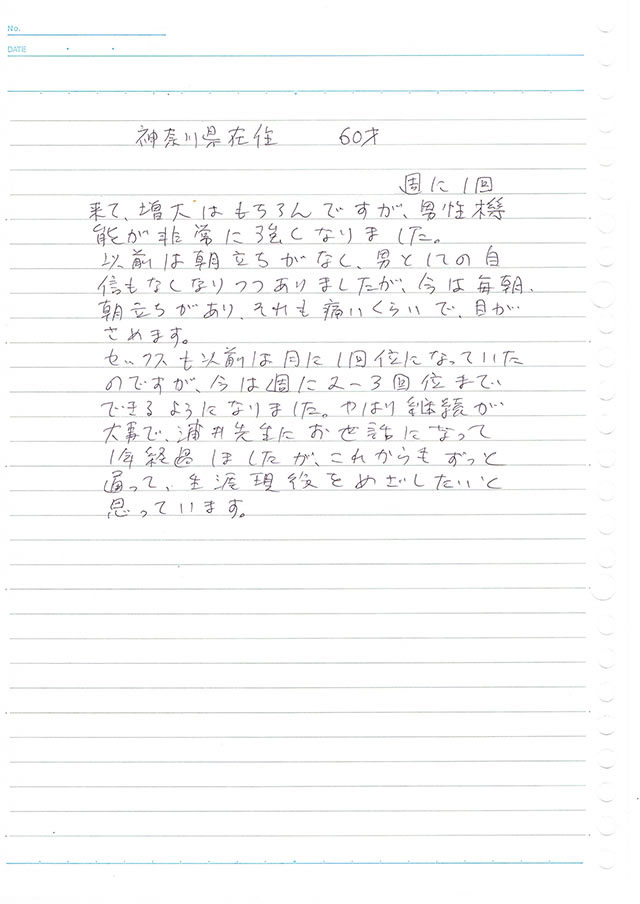 No.
DATE
神奈川県在住 60才
週に1回
来て、増大はもちろんですが、男性機
能が非常に強くなりました。
以前は朝立ちがなく、男としての自
信もなくなりつつありましたが、今は毎朝、
朝立ちがあり、それも痛いくらいで、目が
さめます。
セックスも以前は月に1回位になっていた
のですが、今は週に2~3回位まで
できるようになりました。やはり継続が
大事で、浦井先生にお世話になって
1年経過しましたが、これからもずっと
通って、生涯現役をめざしたいと
思っています。